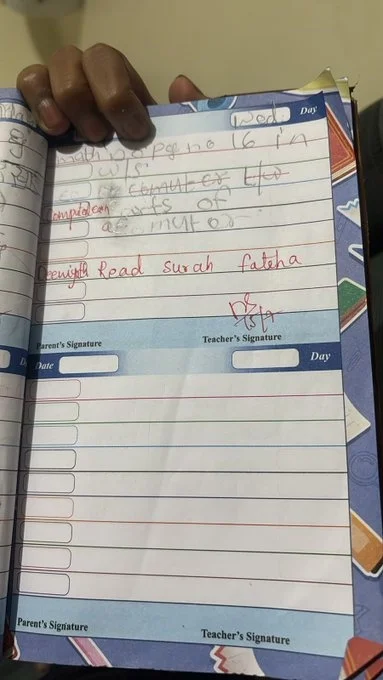 Wed Day
math pg no 16 in
w/s
computer
Computer parts of
a computer
Deeniyth Read Surah fateha
Parent's Signature Teacher's Signature
Date Day
Parent's Signature Teacher's Signature